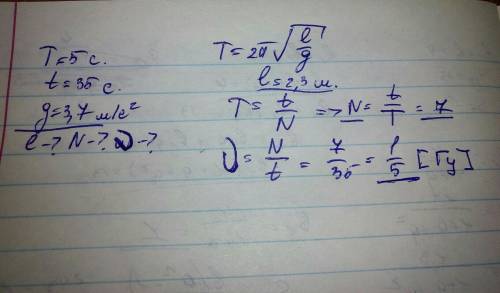 T=5 с.
t=35 с.
g=3,7 м/с²
l-? N-? ν-?
T=2π√(l/g)
l=2,3 м.
T = t/N => N = t/T = 7
ν = N/t = 7/35 = 1/5 [Гц]